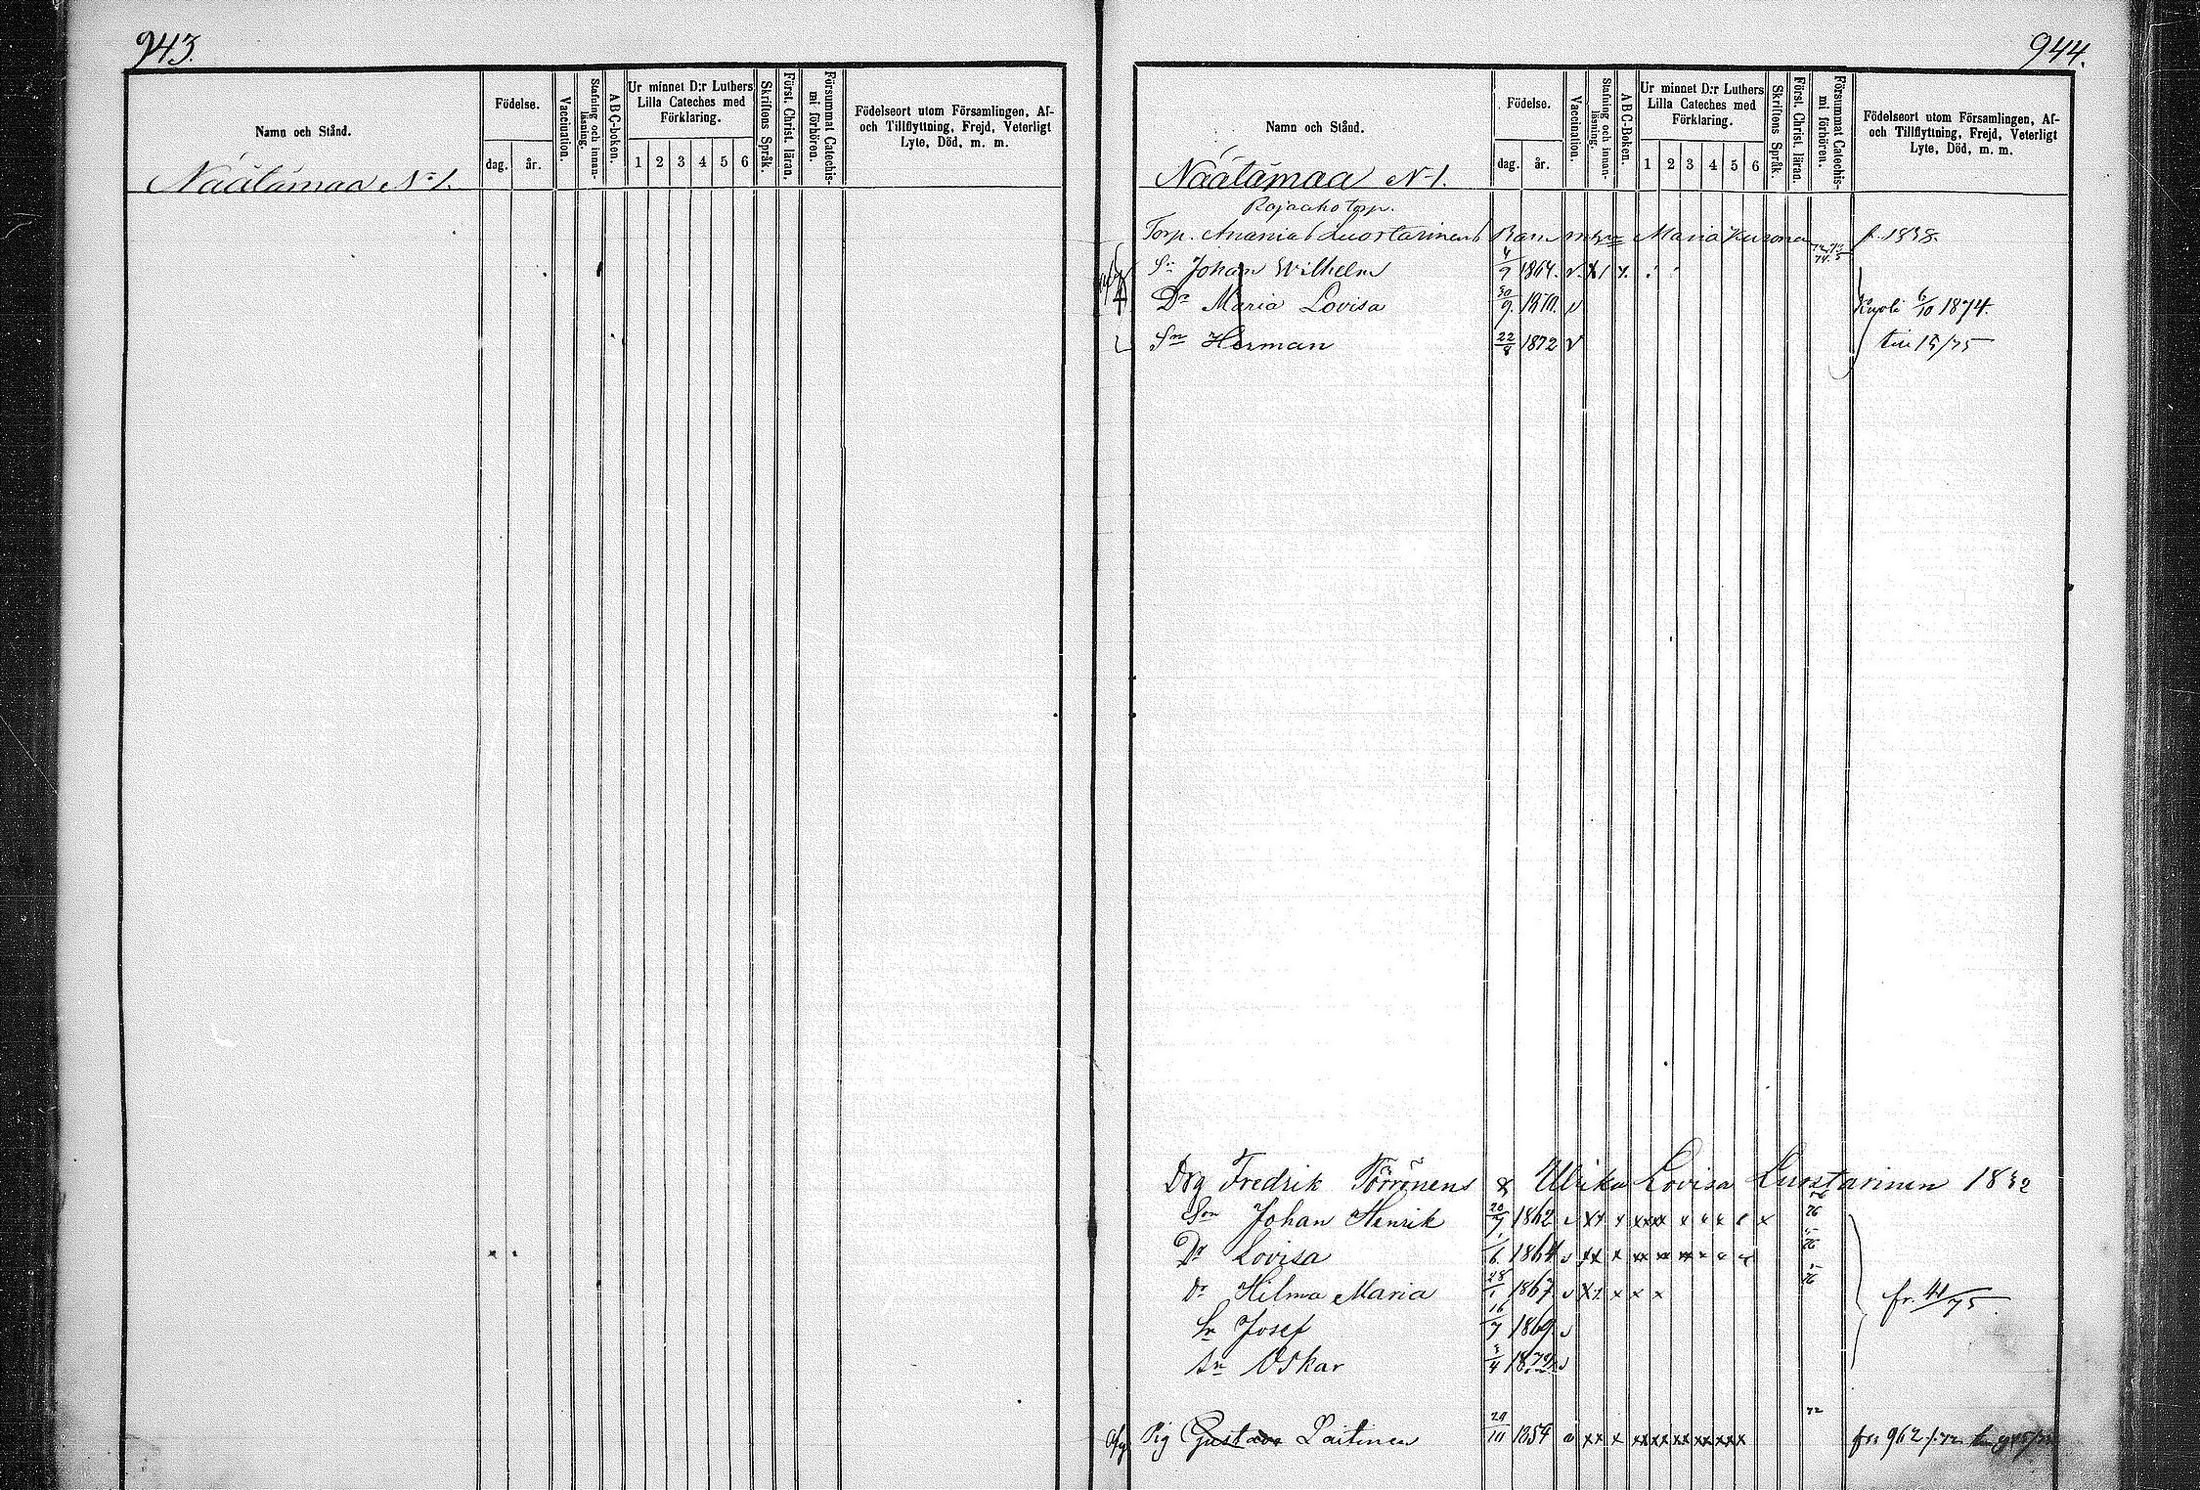 943.
Namn och Stånd.
Födelse.
dag. år.
Vaccination.
Stafning och innanläsning.
A B C-boken.
Ur minnet D:r Luthers Lilla Cateches med Förklaring.
1 2 3 4 5 6
Skriftens Språk.
Först. Christ. läran.
Försummat Catechismi förhören.
Födelseort utom Församlingen, Af- och Tillflyttning, Frejd, Veterligt Lyte, Död, m. m.
Näätämaa N:1.
944.
Namn och Stånd.
Födelse.
dag. år.
Vaccination.
Stafning och innanläsning.
A B C-Boken.
Ur minnet D:r Luthers Lilla Cateches med Förklaring.
1 2 3 4 5 6
Skriftens Språk.
Först. Christ. lärad.
Försummat Catechismi förhören.
Födelseort utom Församlingen, Af- och Tillflyttning, Frejd, Veterligt Lyte, Död, m. m.
Näätämaa N:1.
Rajaaho torp.
Torp. Ananias Luostarinens Barn m h Maria Kuronen f. 1838.
Sn Johan Wilhelm 4/9 1864.
Dr Maria Lovisa 30/9 1870. Kuoli 6/10 1874.
Sn Herman 22/8 1872 till 15/75
Drg Fredrik Törrönens & Ulrika Lovisa Luostarinen 1832
Son Johan Henrik 20/7 1862
Dr Lovisa 1/6 1864
Dr Hilma Maria 28/1 1867 fr. 41/75
Sn Josef 16/7 1869
Sn Oskar 3/4 1874
Pig Gustava Laitinen 29/10 1854 fr. 962/72